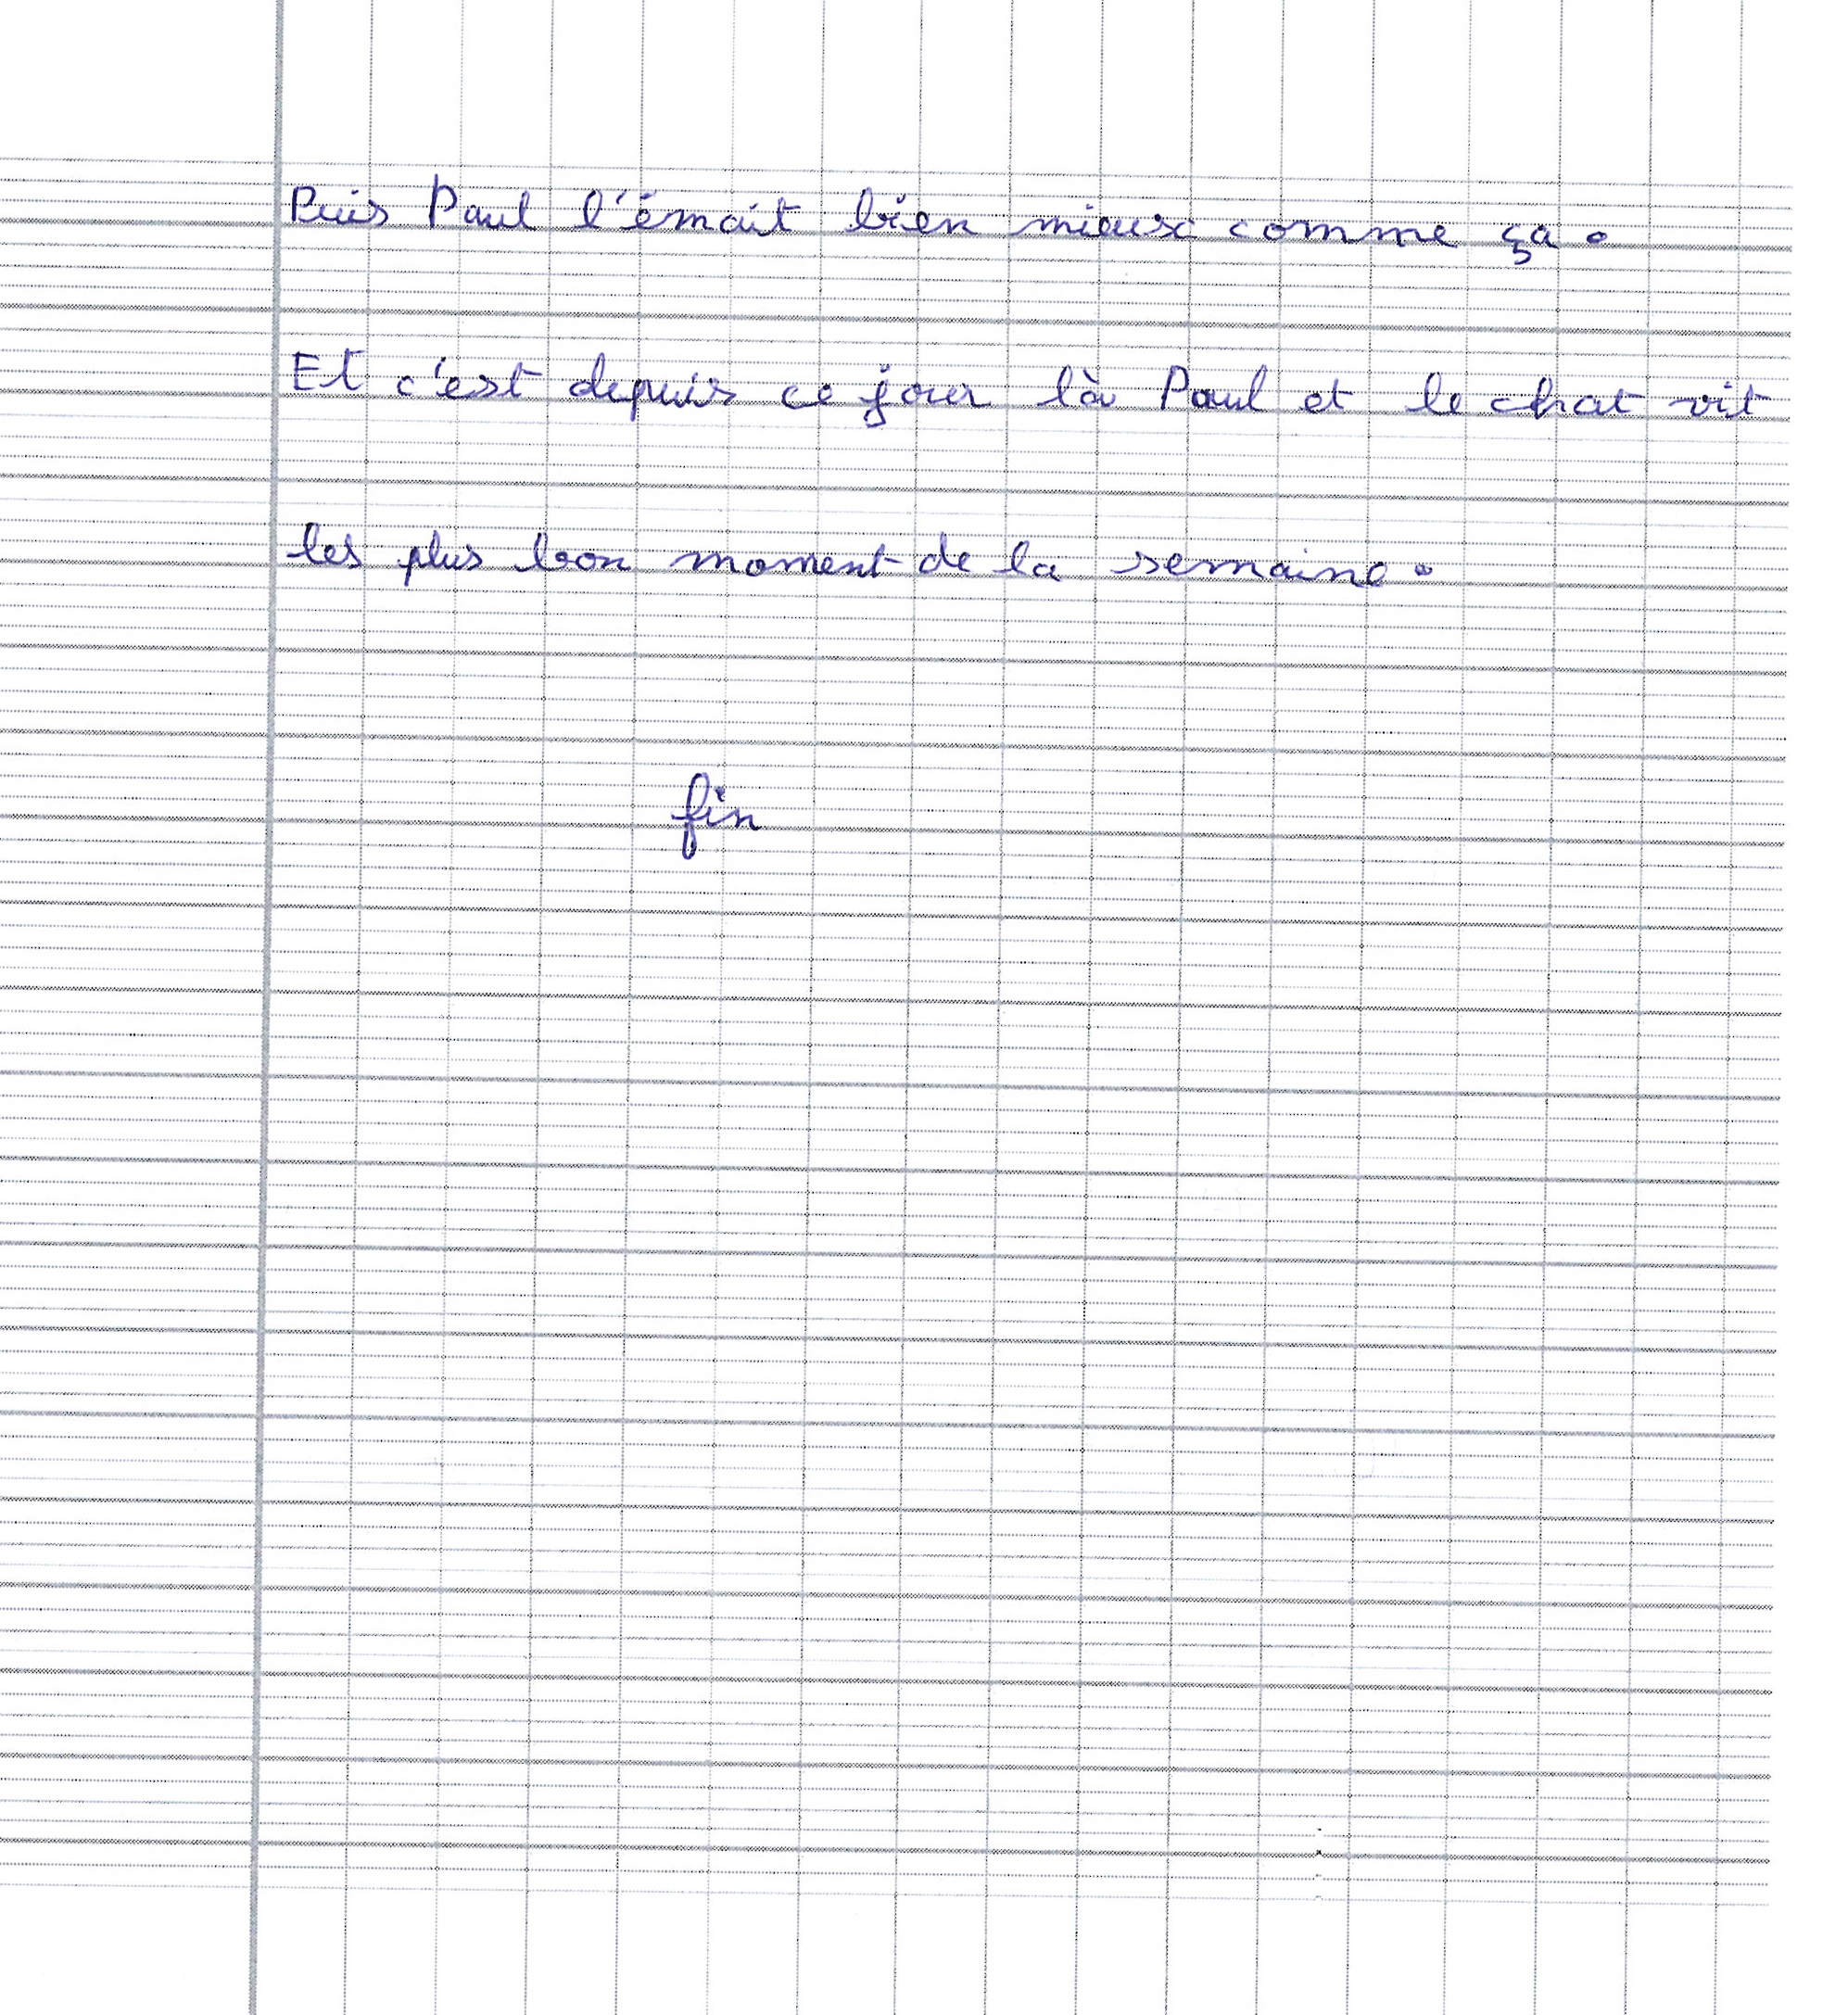 Puis Paul l'émait bien mieux comme ça.
Et c'est depuis ce jour là Paul et le chat vit
les plus bon moment de la semaine.
fin